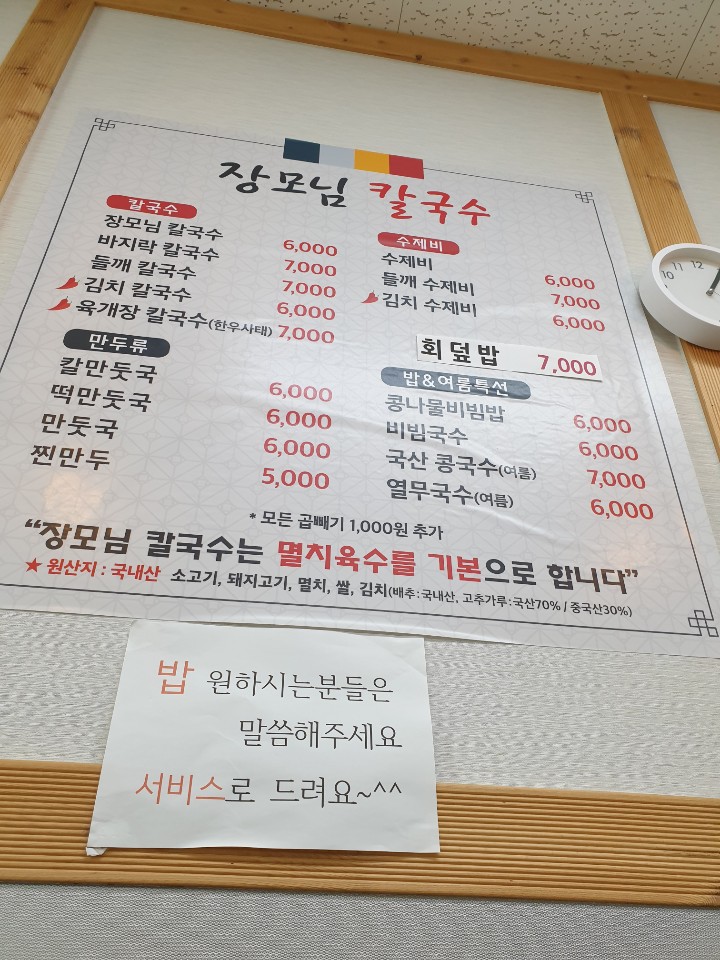 장모님 칼국수
칼국수
장모님 칼국수 6,000
바지락 칼국수 7,000
들깨 칼국수 7,000
김치 칼국수 6,000
육개장 칼국수(한우사태) 7,000
수제비
수제비 6,000
들깨 수제비 7,000
김치 수제비 6,000
회덮밥 7,000
만두류
칼만둣국 6,000
떡만둣국 6,000
만둣국 6,000
찐만두 5,000
밥&여름특선
콩나물비빔밥 6,000
비빔국수 6,000
국산 콩국수(여름) 7,000
열무국수(여름) 6,000
* 모든 곱빼기 1,000원 추가
“장모님 칼국수는 멸치육수를 기본으로 합니다”
★ 원산지 : 국내산 소고기, 돼지고기, 멸치, 쌀, 김치(배추:국내산, 고추가루:국산70% / 중국산30%)
밥 원하시는분들은
말씀해주세요
서비스로 드려요~^^
10 11 12